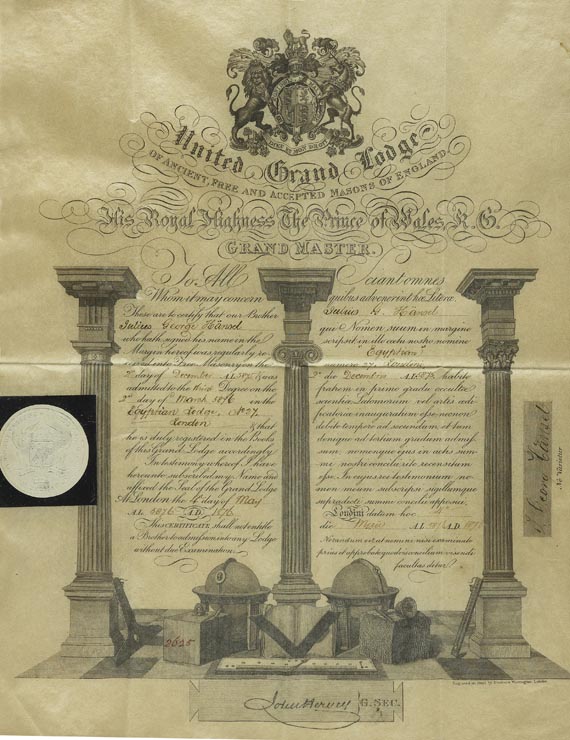 DIEU ET MON DROIT
United Grand Lodge
OF ANCIENT, FREE AND ACCEPTED MASONS OF ENGLAND
His Royal Highness The Prince of Wales, K.G.
GRAND MASTER.
To All
Whom it may concern
These are to certify that our Brother
Julius George Hansel
who hath signed his name in the
Margin hereof was regularly re-
ceived into Free Masonry on the
day of December A.L. 5875 & was
admitted to the third Degree on the
2nd day of March 5876 in the
Egyptian Lodge, No 27,
London & that
he is duly registered in the Books
of this Grand Lodge accordingly
In testimony whereof I have
hereunto subscribed my Name and
affixed the Seal of the Grand Lodge
At London the 4th day of May
A.L. 5876 A.D. 1876
This CERTIFICATE shall not entitle
a Brother to admission into any Lodge
without due Examination.
Sciant omnes
quibus advenerint hæ Literæ
Julius G. Hansel
qui Nomen suum in margine
scripsit in die actu nostro nomine
Egyptian
numero 27 London
die December A.L. 5875 habito
fratrem in primo gradu occultæ
scientiæ Latomorum vel artis ædi-
ficatoriæ inauguratum esse necnon
debito tempore ad secundum et tum
denique ad tertium gradum admis-
sum nomenque ejus in actis sum-
mi nostri concilii rite recensitum
esse. In cujus rei testimonium no-
men meum subscripsi sigillumque
supradicti summi concilii apposui.
Londini datum hoc 4to
die Maii A.L. 5876 A.D. 1876
Nemo
facultas detur.
Ne Varietur
2645
John Hervey G. SEC.